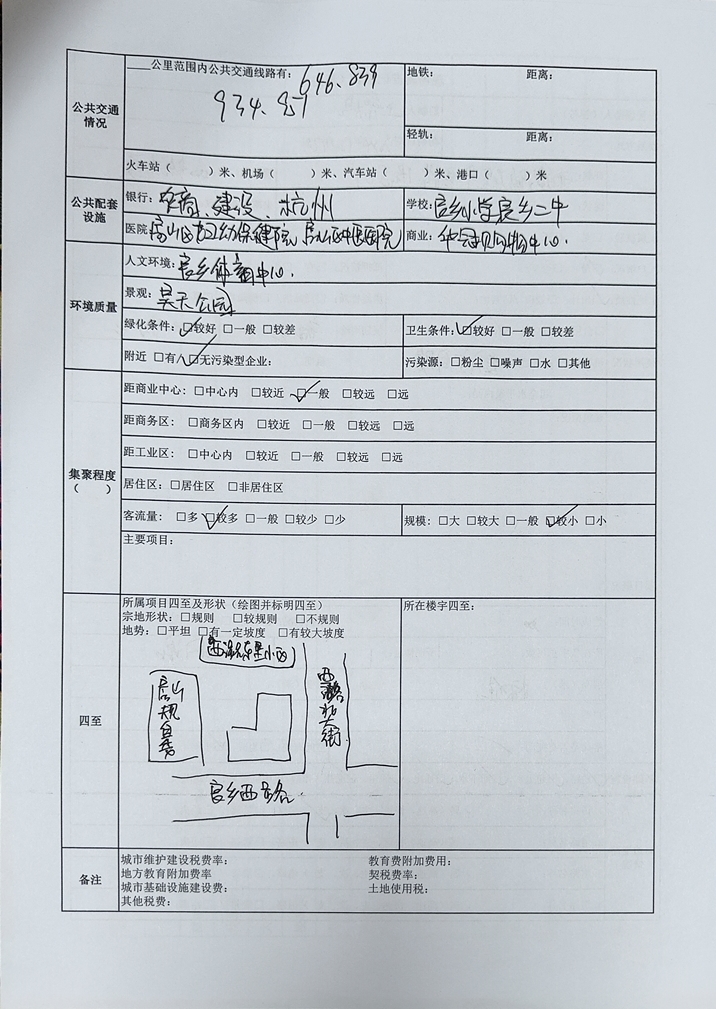 公共交通情况
____公里范围内公共交通线路有: 646、839
934、
地铁: 距离:
轻轨: 距离:
火车站( )米、机场( )米、汽车站( )米、港口( )米
公共配套设施
银行: 农商、建设、杭州
学校: 良乡小学良乡二中
医院: 房山区妇幼保健院 房山区中医医院
商业: 华冠购物中心.
环境质量
人文环境: 良乡体育中心.
景观: 昊天公园
绿化条件: ☑较好 □一般 □较差
卫生条件: ☑较好 □一般 □较差
附近 □有/☑无污染型企业:
污染源: □粉尘 □噪声 □水 □其他
集聚程度( )
距商业中心: □中心内 □较近 ☑一般 □较远 □远
距商务区: □商务区内 □较近 □一般 □较远 □远
距工业区: □中心内 □较近 □一般 □较远 □远
居住区: □居住区 □非居住区
客流量: □多 ☑较多 □一般 □较少 □少
规模: □大 □较大 □一般 ☑较小 □小
主要项目:
四至
所属项目四至及形状(绘图并标明四至)
宗地形状: □规则 □较规则 □不规则
地势: □平坦 □有一定坡度 □有较大坡度
所在楼宇四至:
西潞东里小区
房山规自委
西潞北大街
良乡西路.
备注
城市维护建设税费率:
教育费附加费用:
地方教育附加费率
契税费率:
城市基础设施建设费:
土地使用税:
其他税费: